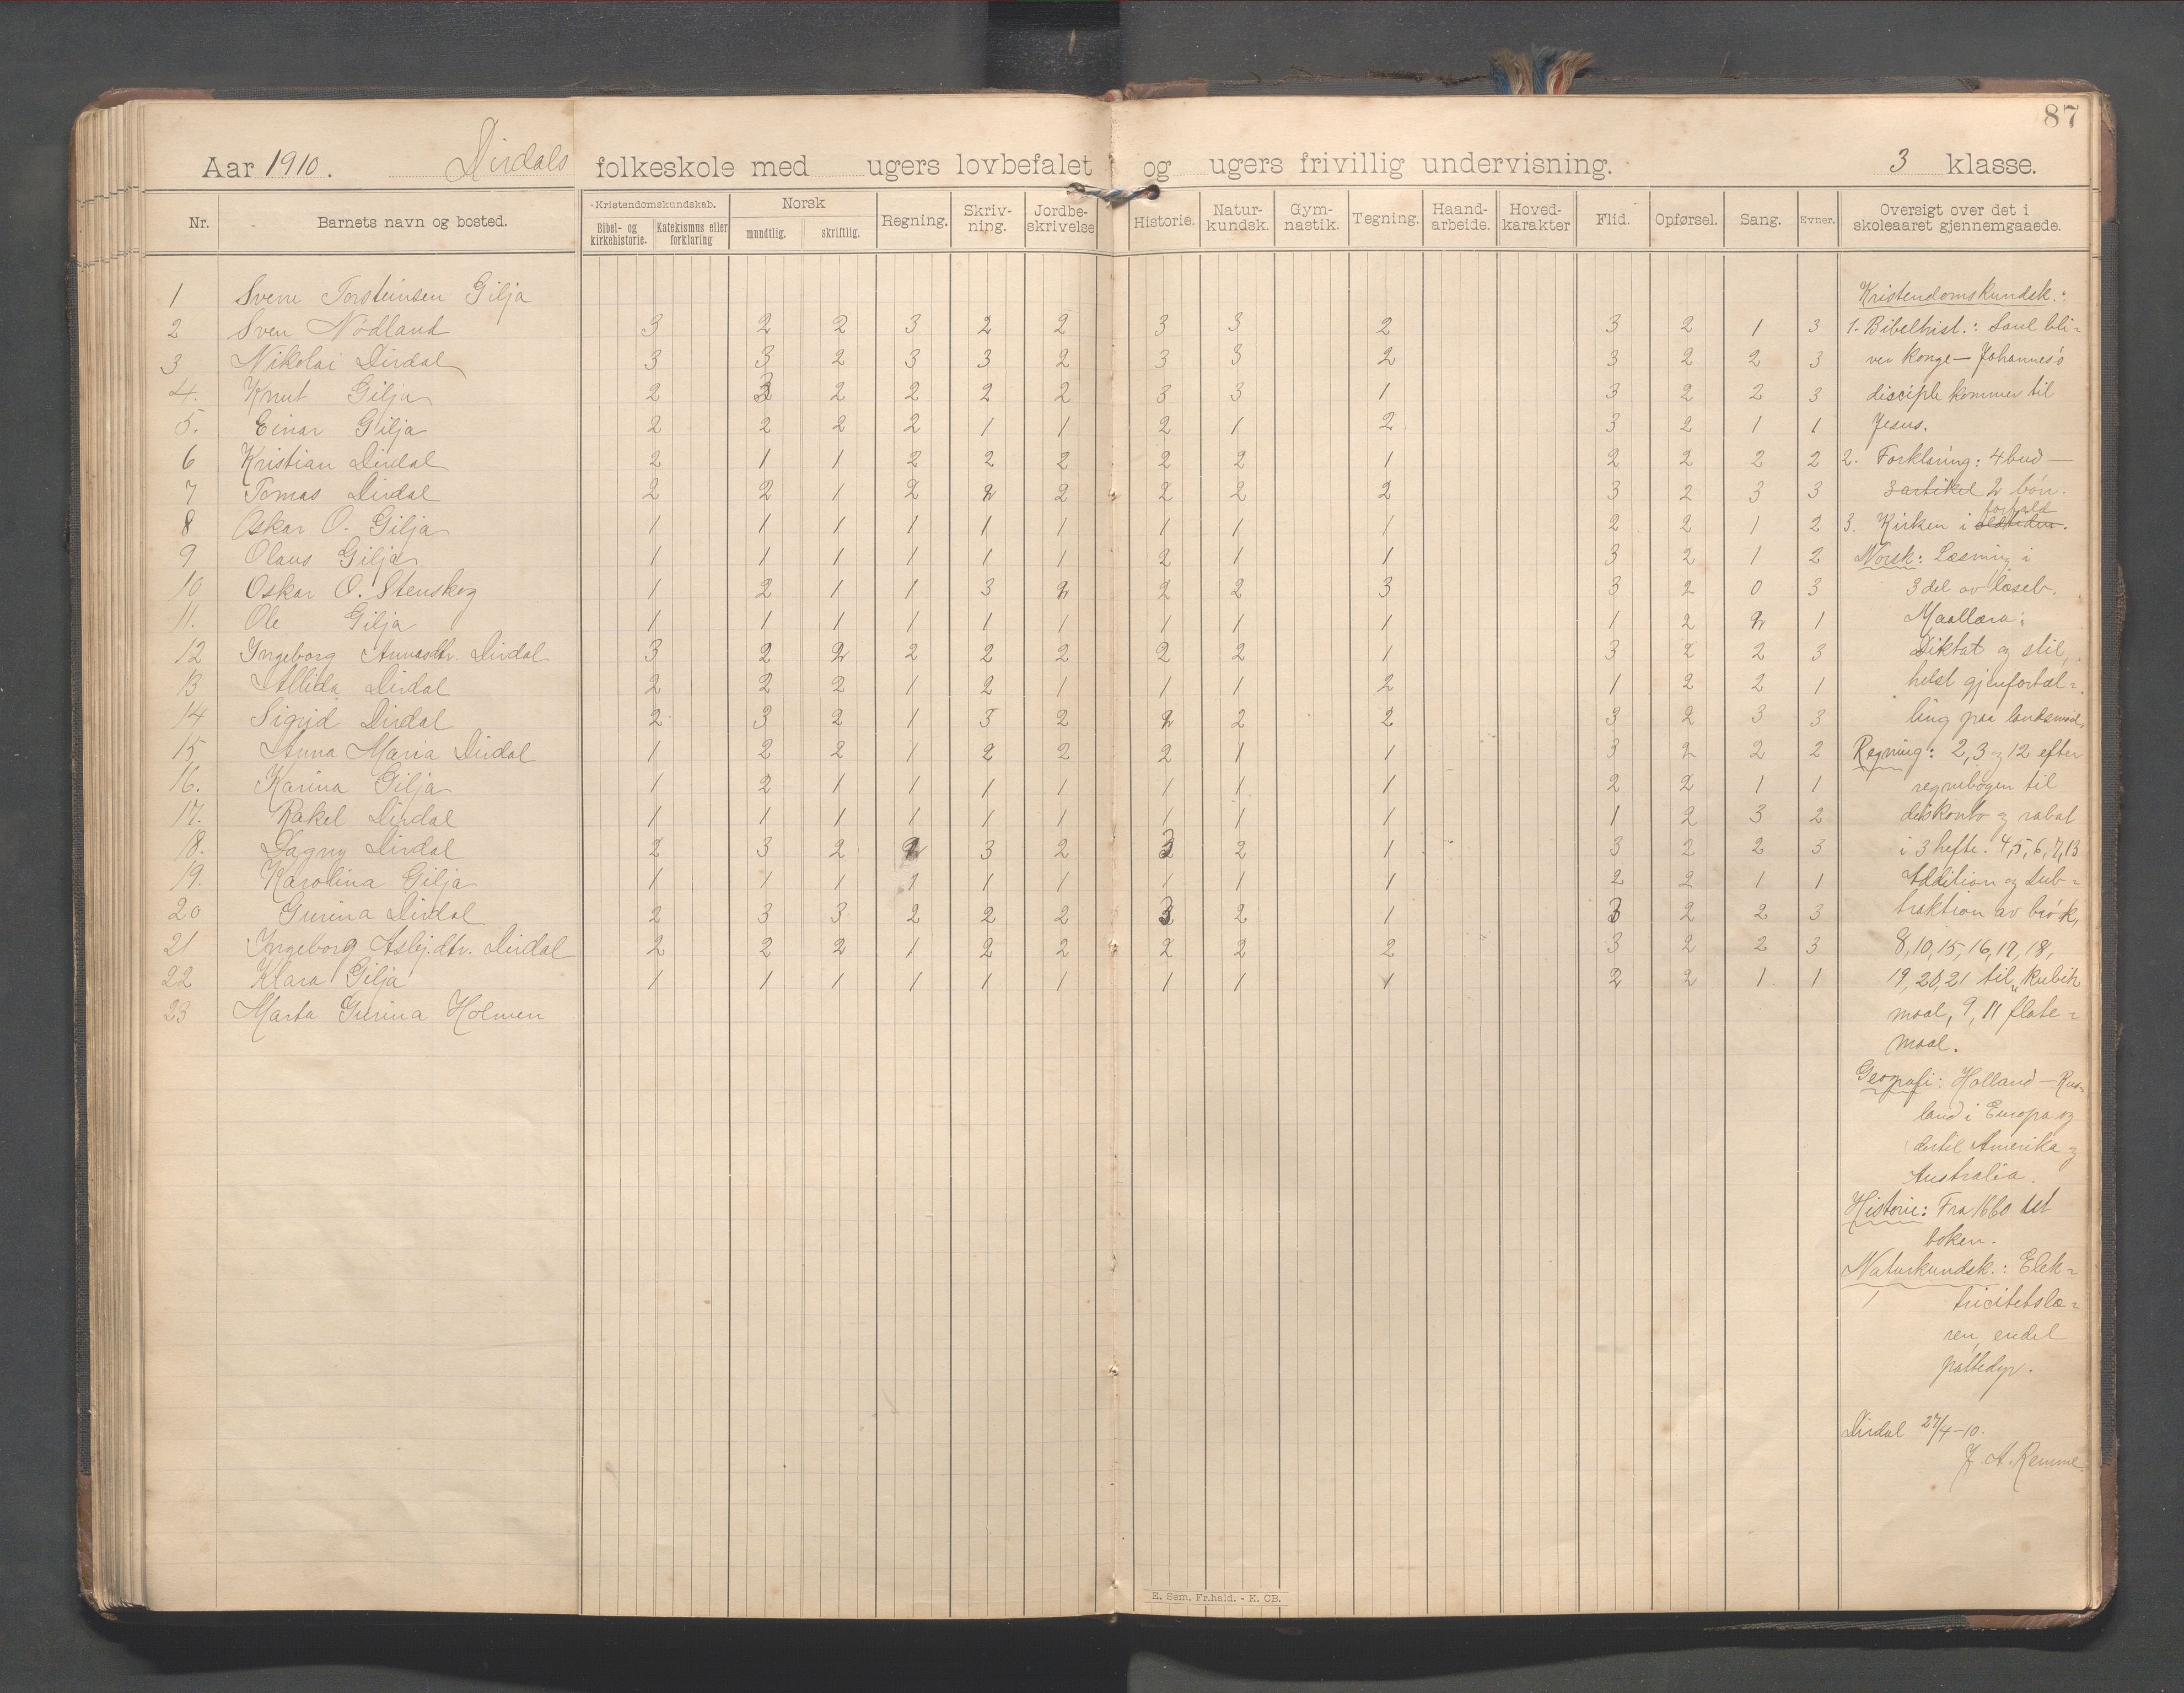 87
Aar 1910. Dirdals folkeskole med ugers lovbefalet og ugers frivillig undervisning. 3 klasse.
Nr. Barnets navn og bosted. Kristendomskundskab. Bibel- og kirkehistorie. Katekismus eller forklaring Norsk mundtlig. skriftlig. Regning. Skriv-ning. Jordbe-skrivelse Historie. Natur-kundsk. Gym-nastik. Tegning. Haand-arbeide. Hoved-karakter Flid. Opførsel. Sang. Evner. Oversigt over det i skoleaaret gjennemgaaede.
1 Svenn Torsteinsen Gilja
2 Sven Nødland 3 2 2 3 2 2 3 3 2 3 2 1 3
3 Nikolai Dirdal 3 3 2 3 3 2 3 3 2 3 2 2 3
4. Knut Gilja 2 3 2 2 2 2 3 3 1 3 2 2 3
5. Einar Gilja 2 2 2 2 1 1 2 1 2 3 2 1 1
6 Kristian Dirdal 2 1 1 2 2 2 2 2 1 2 2 2 2
7 Tomas Dirdal 2 2 1 2 2 2 2 2 2 3 2 3 3
8 Oskar O. Gilja 1 1 1 1 1 1 1 1 1 2 2 1 2
9 Olaus Gilja 1 1 1 1 1 1 2 1 1 3 2 1 2
10 Oskar O. Stenskog 1 2 1 1 3 2 2 2 3 3 2 0 3
11. Ole Gilja 1 1 1 1 1 1 1 1 1 1 2 2 1
12 Ingeborg Annasdtr. Dirdal 3 2 2 2 2 2 2 2 1 3 2 2 3
13 Allida Dirdal 2 2 2 1 2 1 1 1 2 1 2 2 1
14 Sigrid Dirdal 2 3 2 1 3 2 2 2 2 3 2 3 3
15 Anna Maria Dirdal 1 2 2 1 2 2 2 1 1 3 2 2 2
16. Karina Gilja 1 2 1 1 1 1 1 1 1 2 2 1 1
17. Rakel Dirdal 1 1 1 1 1 1 1 1 1 1 2 3 2
18. Dagny Dirdal 2 3 2 2 3 2 3 2 1 3 2 2 3
19. Karolina Gilja 1 1 1 1 1 1 1 1 1 2 2 1 1
20 Gurina Dirdal 2 3 3 2 2 2 3 2 1 3 2 2 3
21 Ingeborg Asbj.dtr. Dirdal 2 2 2 1 2 2 2 2 2 3 2 2 3
22 Klara Gilja 1 1 1 1 1 1 1 1 1 2 2 1 1
23 Marta Gurina Holmen
Kristendomskundsk.:
1. Bibelhist.: Saul bli-
ver konge — Johannes's
disciple kommer til
Jesus.
2. Forklaring: 4 bud —
3 artikel 2 bøn.
3. Kirken i forfald
Norsk: Læsning i
3 del av læseb.
Maallæra;
Diktat og stil,
helst gjenfortæl-
ling paa landsmaal,
Regning: 2, 3 og 12 efter
regnebogen til
diskonto og rabat
i 3 hefte. 4, 5, 6, 7, 13
Addition og sub-
traktion av brøk,
8, 10, 15, 16, 17, 18,
19, 20, 21 til kubik
maal, 9, 11 flate-
maal.
Geografi: Holland — Rus-
land i Europa og
dertil Amerika og
Australia.
Historie: Fra 1660 ut
boken.
Naturkundsk.: Elek-
tricitetslæ-
ren, endel
pattedyr.
Dirdal 27/4-10.
J. A. Remme.
E. Sem, Fr.hald. - K. CB.